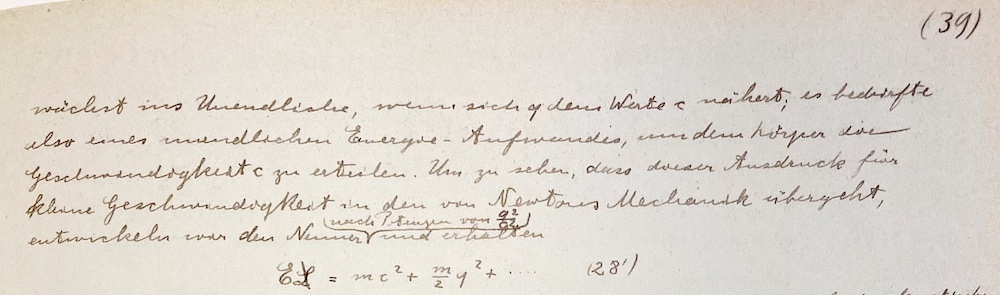 (39)
wächst ins Unendliche, wenn sich q dem Werte c nähert; es bedürfte
also eines unendlichen Energie-Aufwandes, um dem Körper die
Geschwindigkeit c zu erteilen. Um zu sehen, dass dieser Ausdruck für
kleine Geschwindigkeit in den von Newtons Mechanik übergeht,
(nach Potenzen von q²/c²)
entwickeln wir den Nenner und erhalten
E = mc² + m/2 q² + .... (28')